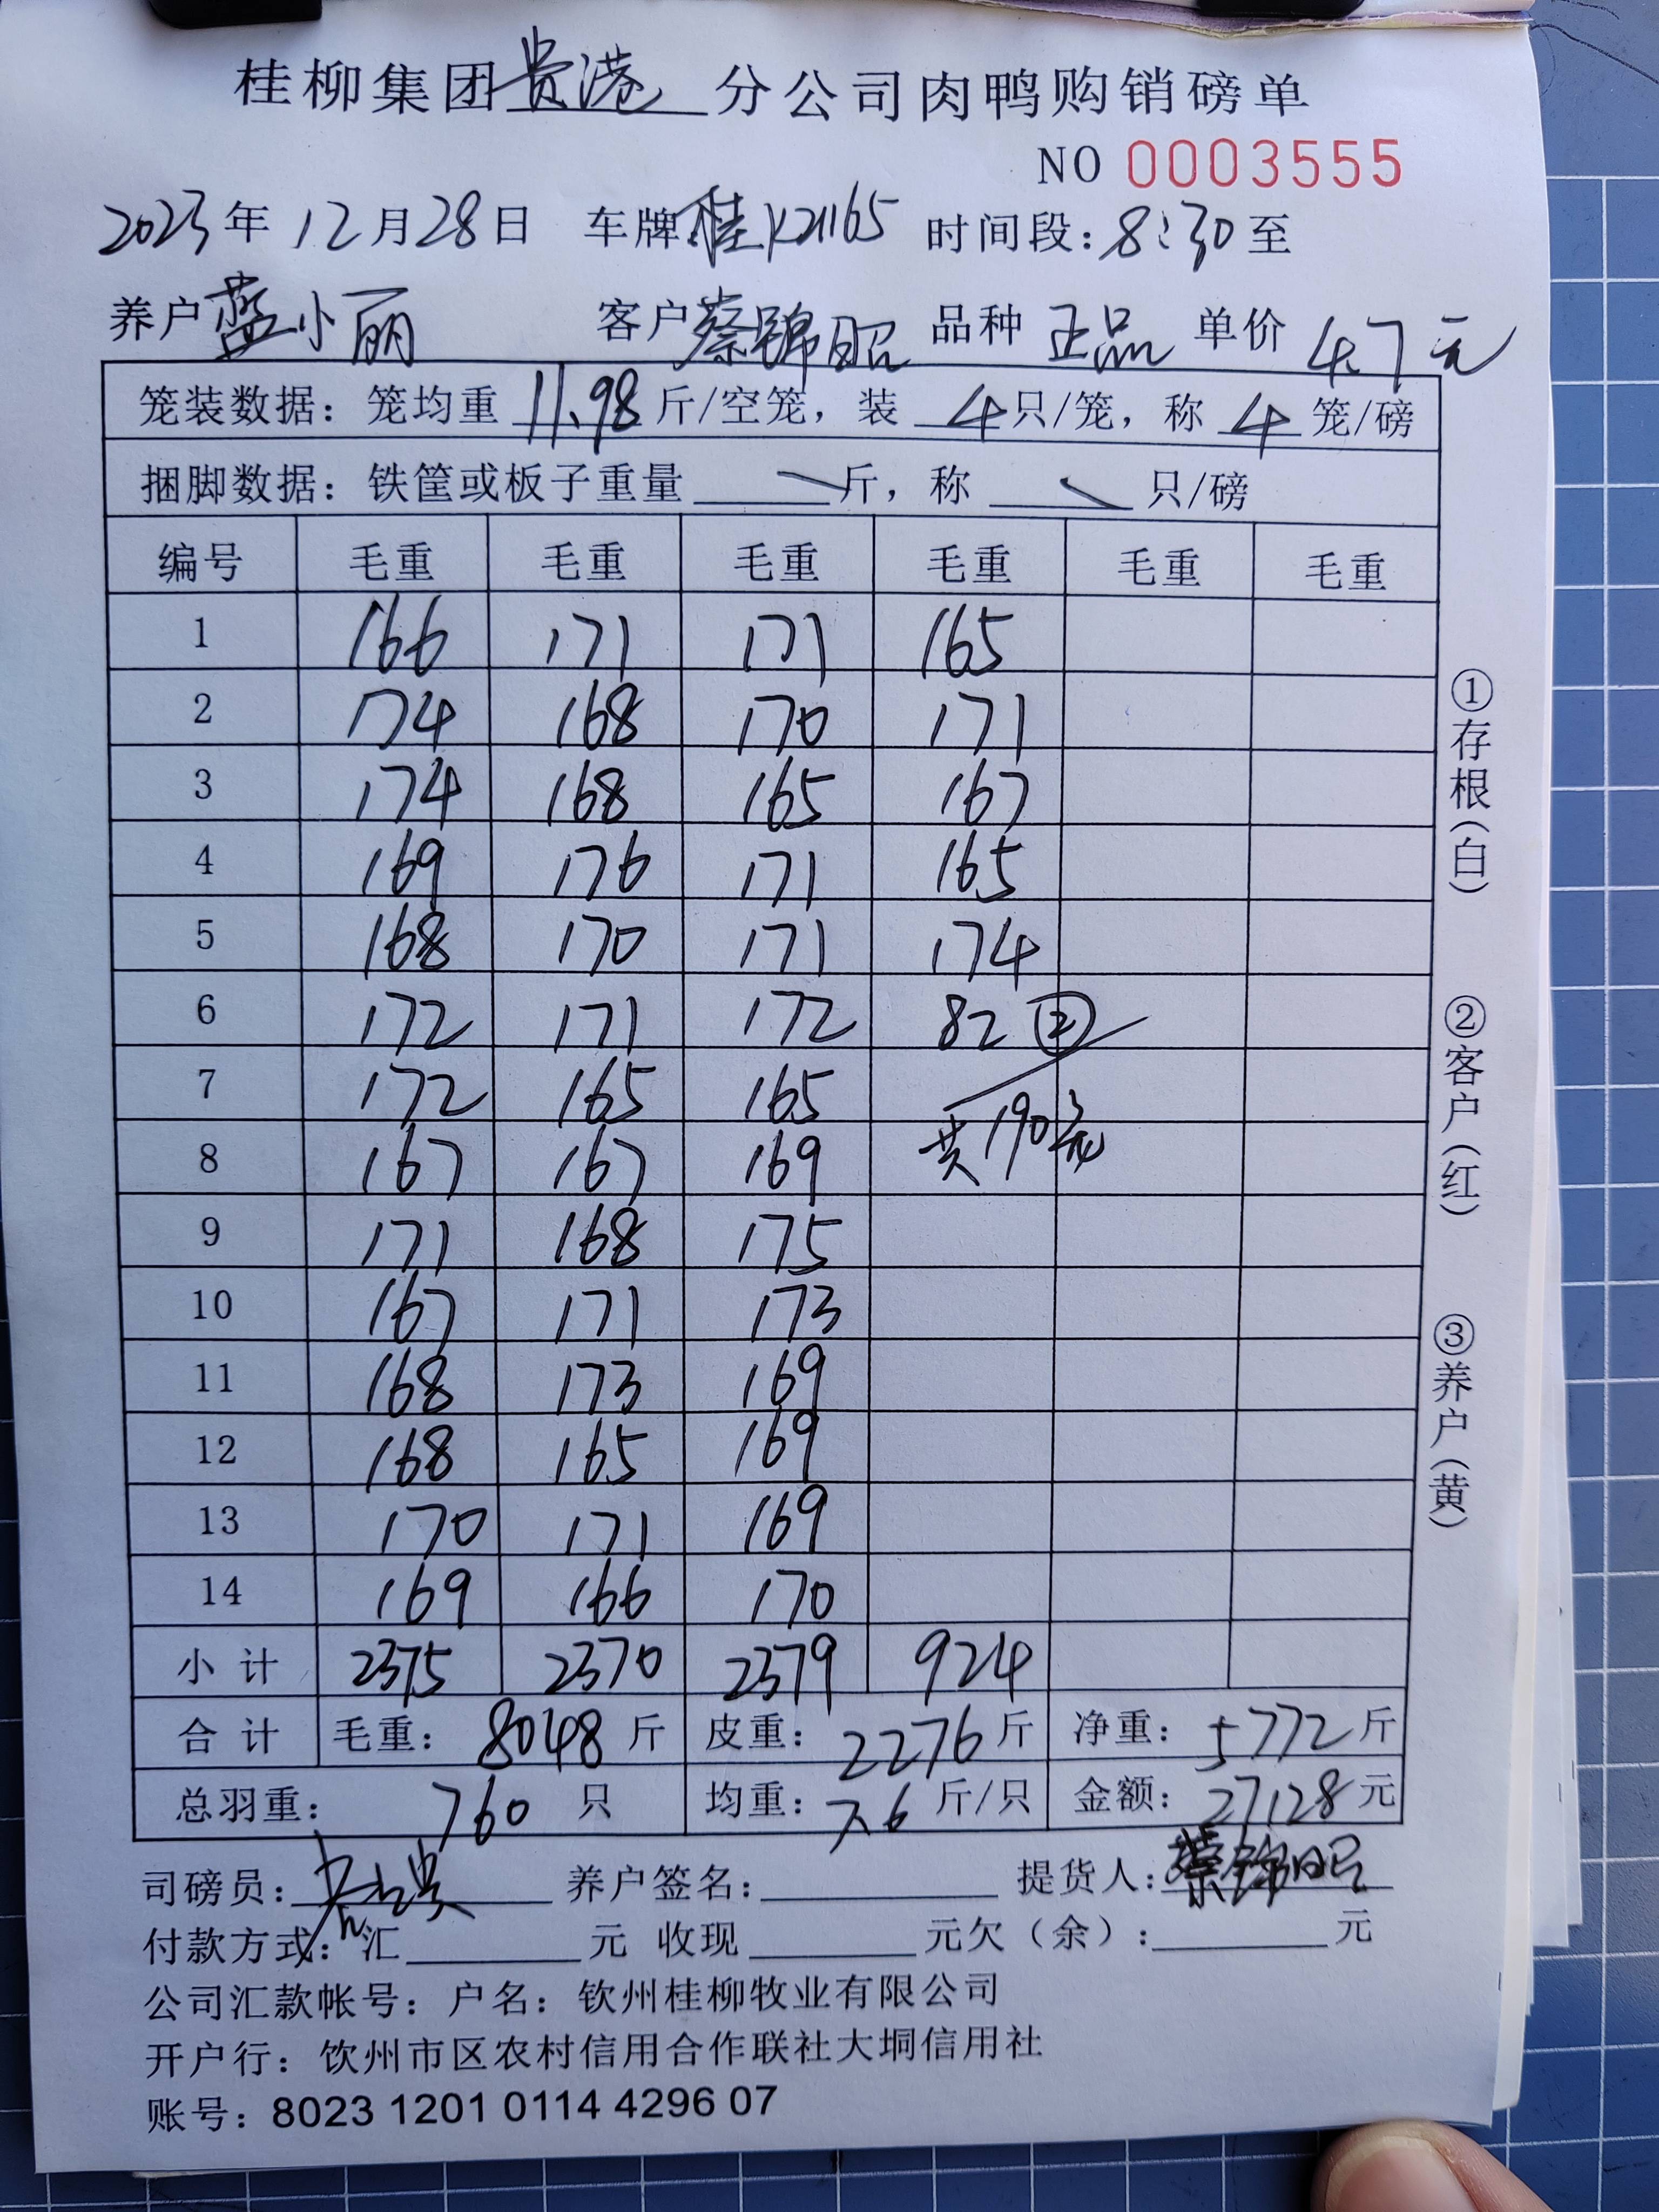 桂柳集团贵港分公司肉鸭购销磅单
NO 0003555
2023年12月28日 车牌桂K21165 时间段:8:30至
养户蓝小丽 客户蔡锦昭 品种 正品 单价 4.7元
笼装数据:笼均重 11.98 斤/空笼,装 4只/笼,称 4 笼/磅
捆脚数据:铁筐或板子重量 斤,称 只/磅
编号 毛重 毛重 毛重 毛重 毛重 毛重
1 166 171 171 165
2 174 168 170 171
3 174 168 165 167
4 169 176 171 165
5 168 170 171 174
6 172 171 172 82 ②
7 172 165 165
8 167 167 169 共190笼
9 171 168 175
10 167 171 173
11 168 173 169
12 168 165 169
13 170 171 169
14 169 166 170
小计 2375 2370 2379 924
合计 毛重:8048斤 皮重:2276斤 净重:5772斤
总羽重:760 只 均重:7.6 斤/只 金额:27128元
司磅员: 养户签名: 提货人:蔡锦昭
付款方式:汇 元 收现 元欠(余): 元
公司汇款帐号:户名:钦州桂柳牧业有限公司
开户行:钦州市区农村信用合作联社大垌信用社
账号:8023 1201 0114 4296 07
①存根(白)
②客户(红)
③养户(黄)